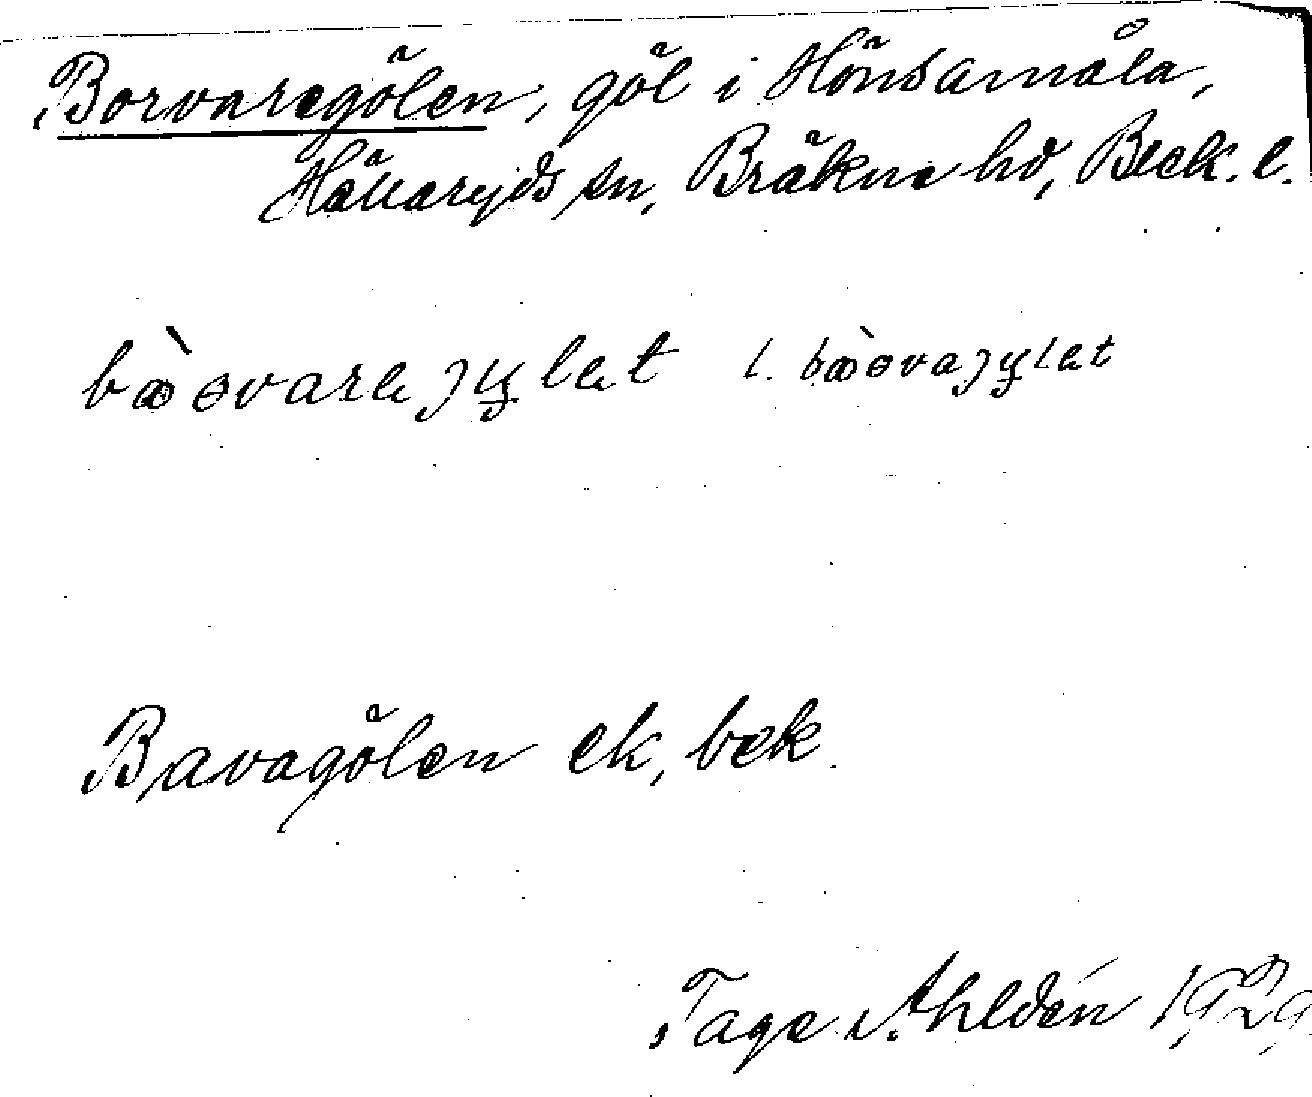 Borvaregölen, göl i Hönsamåla,
Hällaryds sn, Bräkne hd, Blek. l.
bæ̀ɵvarɛjylɛt l. bæ̀ɵvajylɛt
Bavagölen ek, bek.
Tage Ahldén 1929